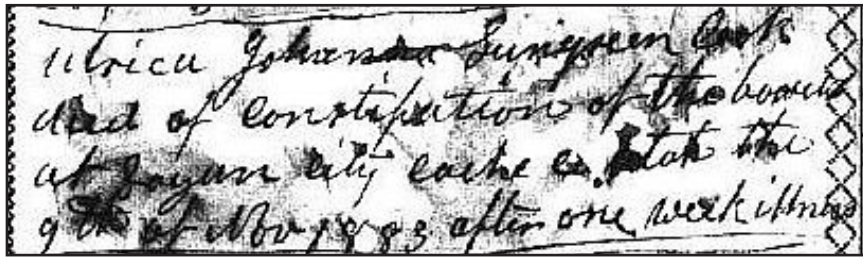 Ulrica Johanna Lungreen Cook
died of constipation of the bowels
at Logan city cache co. utah the
9th of Nov 1883 after one week illness